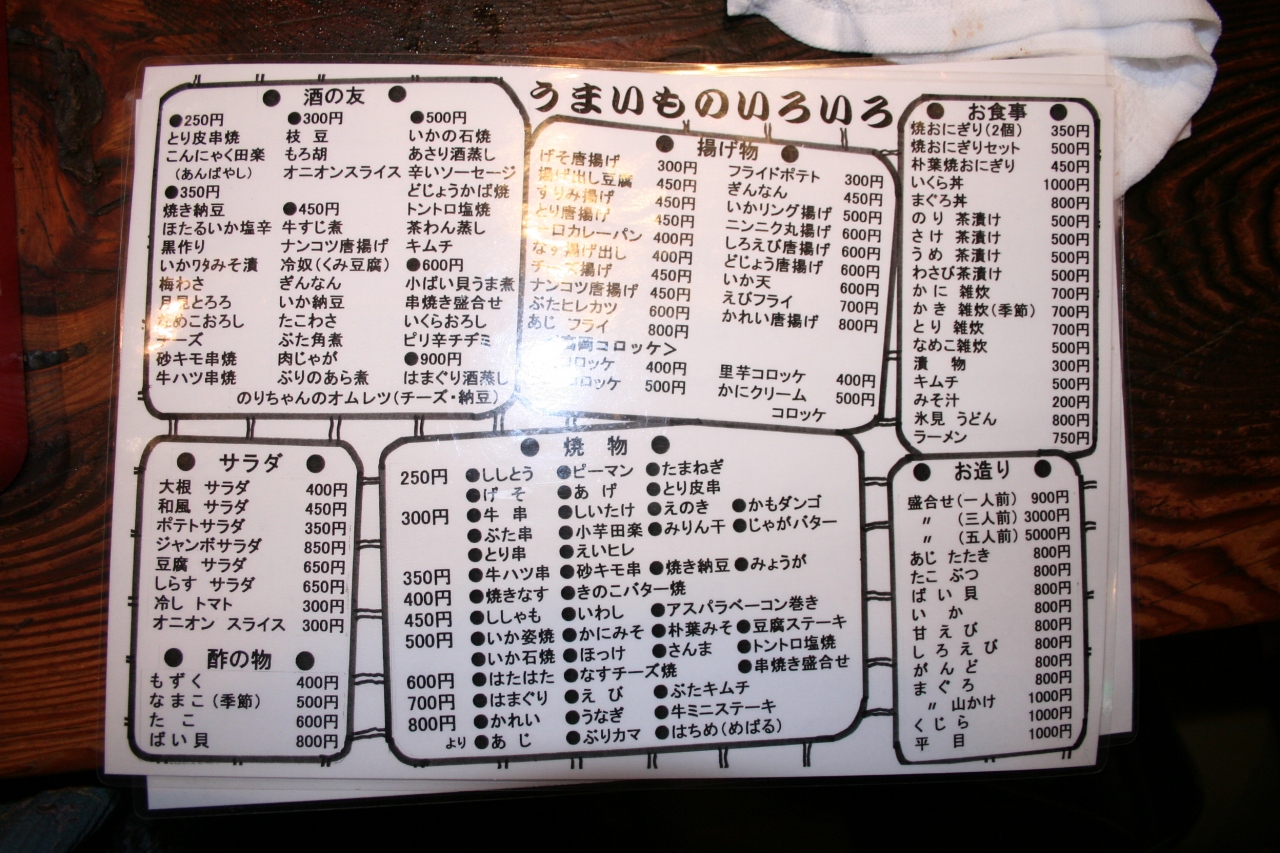 うまいものいろいろ
酒の友
●250円
とり皮串焼
こんにゃく田楽
(あんばやし)
●350円
焼き納豆
ほたるいか塩辛
黒作り
いかワタみそ漬
梅わさ
月見とろろ
なめこおろし
チーズ
砂キモ串焼
牛ハツ串焼
●300円
枝豆
もろ胡
オニオンスライス
●450円
牛すじ煮
ナンコツ唐揚げ
冷奴(くみ豆腐)
ぎんなん
いか納豆
たこわさ
ぶた角煮
肉じゃが
ぶりのあら煮
●500円
いかの石焼
あさり酒蒸し
辛いソーセージ
どじょうかば焼
トントロ塩焼
茶わん蒸し
キムチ
●600円
小ばい貝うま煮
串焼き盛合せ
いくらおろし
ピリ辛チヂミ
●900円
はまぐり酒蒸し
のりちゃんのオムレツ(チーズ・納豆)
揚げ物
げそ唐揚げ 300円
揚げ出し豆腐 450円
すりみ揚げ 450円
とり唐揚げ 450円
ロカレーパン 400円
なす揚げ出し 400円
チーズ揚げ 450円
ナンコツ唐揚げ 450円
ぶたヒレカツ 600円
あじ フライ 800円
高岡コロッケ>
コロッケ 400円
コロッケ 500円
フライドポテト 300円
ぎんなん 450円
いかリング揚げ 500円
ニンニク丸揚げ 600円
しろえび唐揚げ 600円
どじょう唐揚げ 600円
いか天 600円
えびフライ 700円
かれい唐揚げ 800円
里芋コロッケ 400円
かにクリーム 500円
コロッケ
お食事
焼おにぎり(2個) 350円
焼おにぎりセット 500円
朴葉焼おにぎり 450円
いくら丼 1000円
まぐろ丼 800円
のり 茶漬け 500円
さけ 茶漬け 500円
うめ 茶漬け 500円
わさび茶漬け 500円
かに 雑炊 700円
かき 雑炊(季節) 700円
とり 雑炊 700円
なめこ雑炊 500円
漬 物 300円
キムチ 500円
みそ汁 200円
氷見 うどん 800円
ラーメン 750円
サラダ
大根 サラダ 400円
和風 サラダ 450円
ポテトサラダ 350円
ジャンボサラダ 850円
豆腐 サラダ 650円
しらす サラダ 650円
冷し トマト 300円
オニオン スライス 300円
酢の物
もずく 400円
なまこ(季節) 500円
たこ 600円
ばい貝 800円
焼物
250円 ●ししとう ●ピーマン ●たまねぎ
●げそ ●あげ ●とり皮串
300円 ●牛串 ●しいたけ ●えのき ●かもダンゴ
●ぶた串 ●小芋田楽 ●みりん干 ●じゃがバター
●とり串 ●えいヒレ
350円 ●牛ハツ串 ●砂キモ串 ●焼き納豆 ●みょうが
400円 ●焼きなす ●きのこバター焼
450円 ●ししゃも ●いわし ●アスパラベーコン巻き
500円 ●いか姿焼 ●かにみそ ●朴葉みそ ●豆腐ステーキ
●いか石焼 ●ほっけ ●さんま ●トントロ塩焼
600円 ●はたはた ●なすチーズ焼 ●串焼き盛合せ
700円 ●はまぐり ●えび ●ぶたキムチ
800円 ●かれい ●うなぎ ●牛ミニステーキ
より ●あじ ●ぶりカマ ●はちめ(めばる)
お造り
盛合せ(一人前) 900円
〃 (三人前) 3000円
〃 (五人前) 5000円
あじ たたき 800円
たこ ぶつ 800円
ばい貝 800円
いか 800円
甘えび 800円
しろえび 800円
がんど 800円
まぐろ 800円
〃 山かけ 1000円
くじら 1000円
平目 1000円